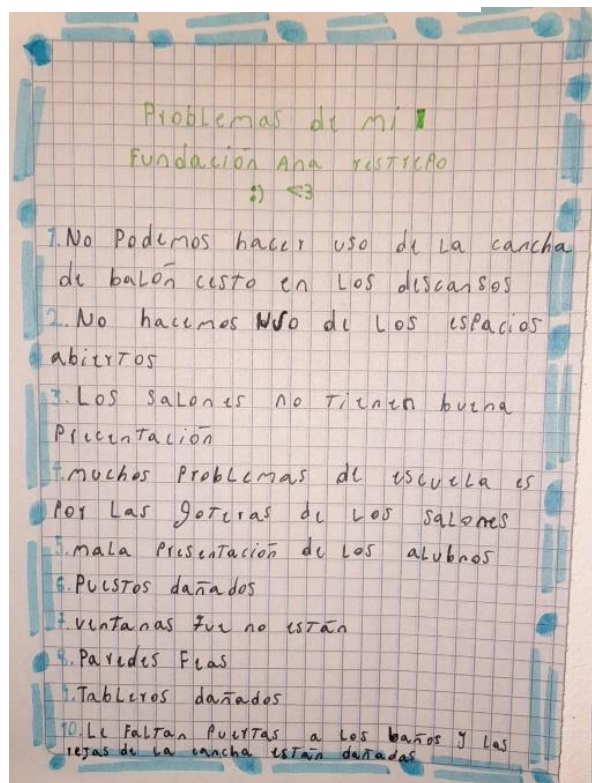 Problemas de mi
Fundación Ana restrepo
:) <3
1. No Podemos hacer uso de la cancha
de balón cesto en Los descansos
2. No hacemos uso de Los espacios
abiertos
3. Los salones no tienen buena
Precentación
4. muchos Problemas de escuela es
Por Las goteras de Los salones
5. mala Presentación de Los alubnos
6. Puestos dañados
7. ventanas que no están
8. Paredes Feas
9. Tableros dañados
10. Le Faltan Puertas a Los baños y Las
rejas de La cancha están dañadas